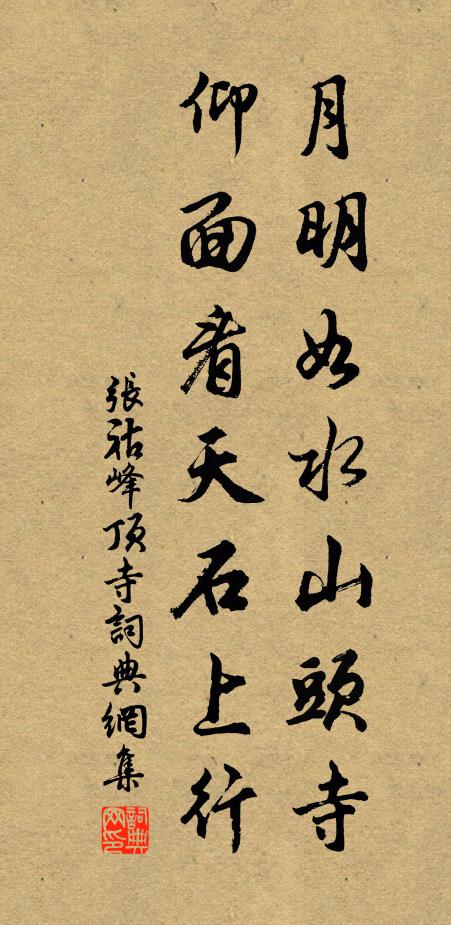 月明如水山頭寺
仰面看天石上行
張祜峰頂寺詞典網集
詞典網印